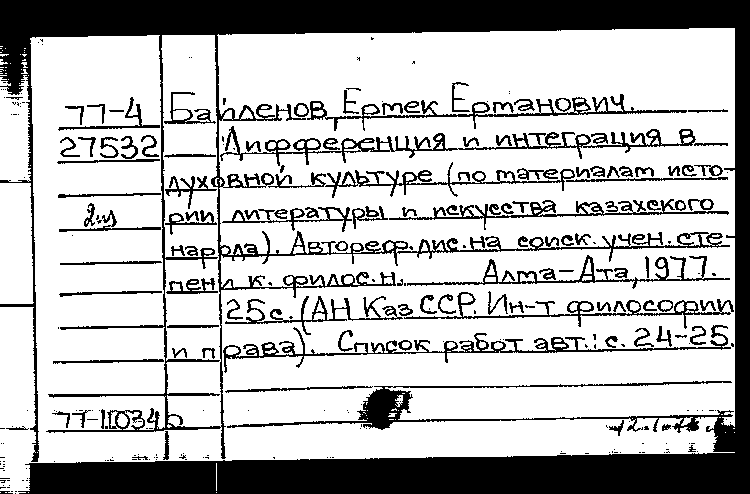 77-4 Байленов, Ертек Ертанович.
27532 Дифференция и интеграция в
духовной культуре (по материалам исто-
2из рии литературы и искусства казахского
народа). Автореф. дис. на соиск. учен. сте-
пени к. филос. н. Алма-Ата, 1977.
25 с. (АН КазССР. Ин-т философии
и права). Список работ авт.: с. 24-25.
77-11034б